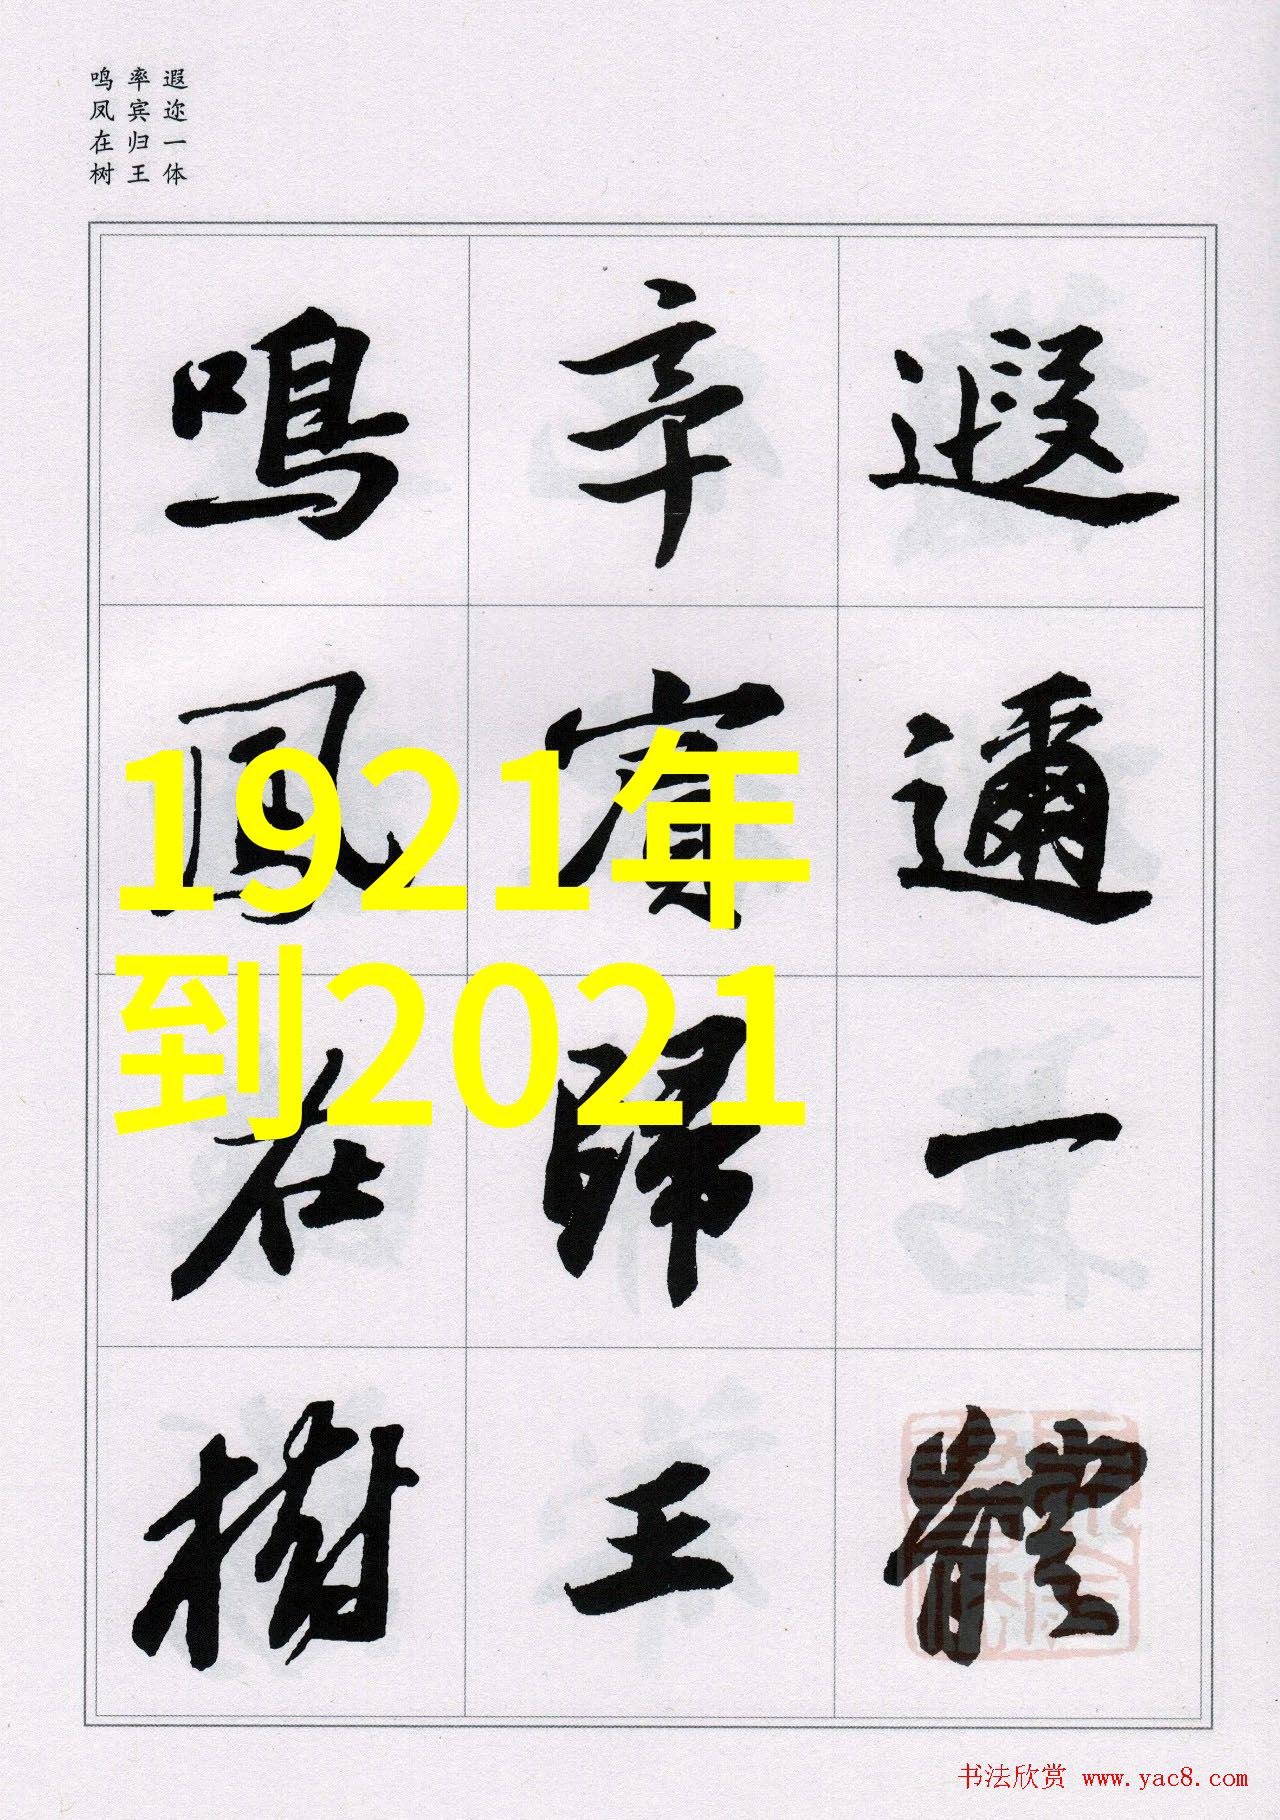 遐迩一体
率宾归王
鸣凤在树
遐邇一體
率賓歸王
鳴鳳在樹
1921年
到2021
书法欣赏 www.yac8.com